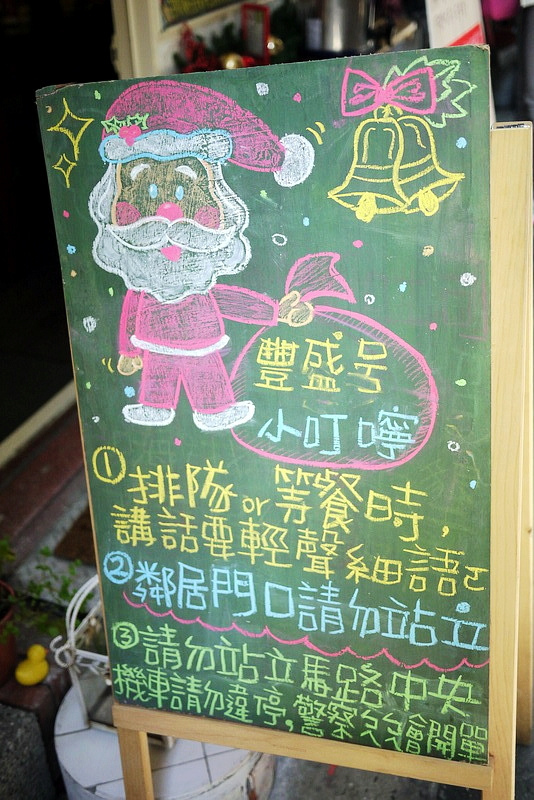 豐盛号
小叮嚀
①排隊or等餐時,
講話要輕聲細語
②鄰居門口請勿站立
③請勿站立馬路中央
機車請勿違停,警察久久會開單